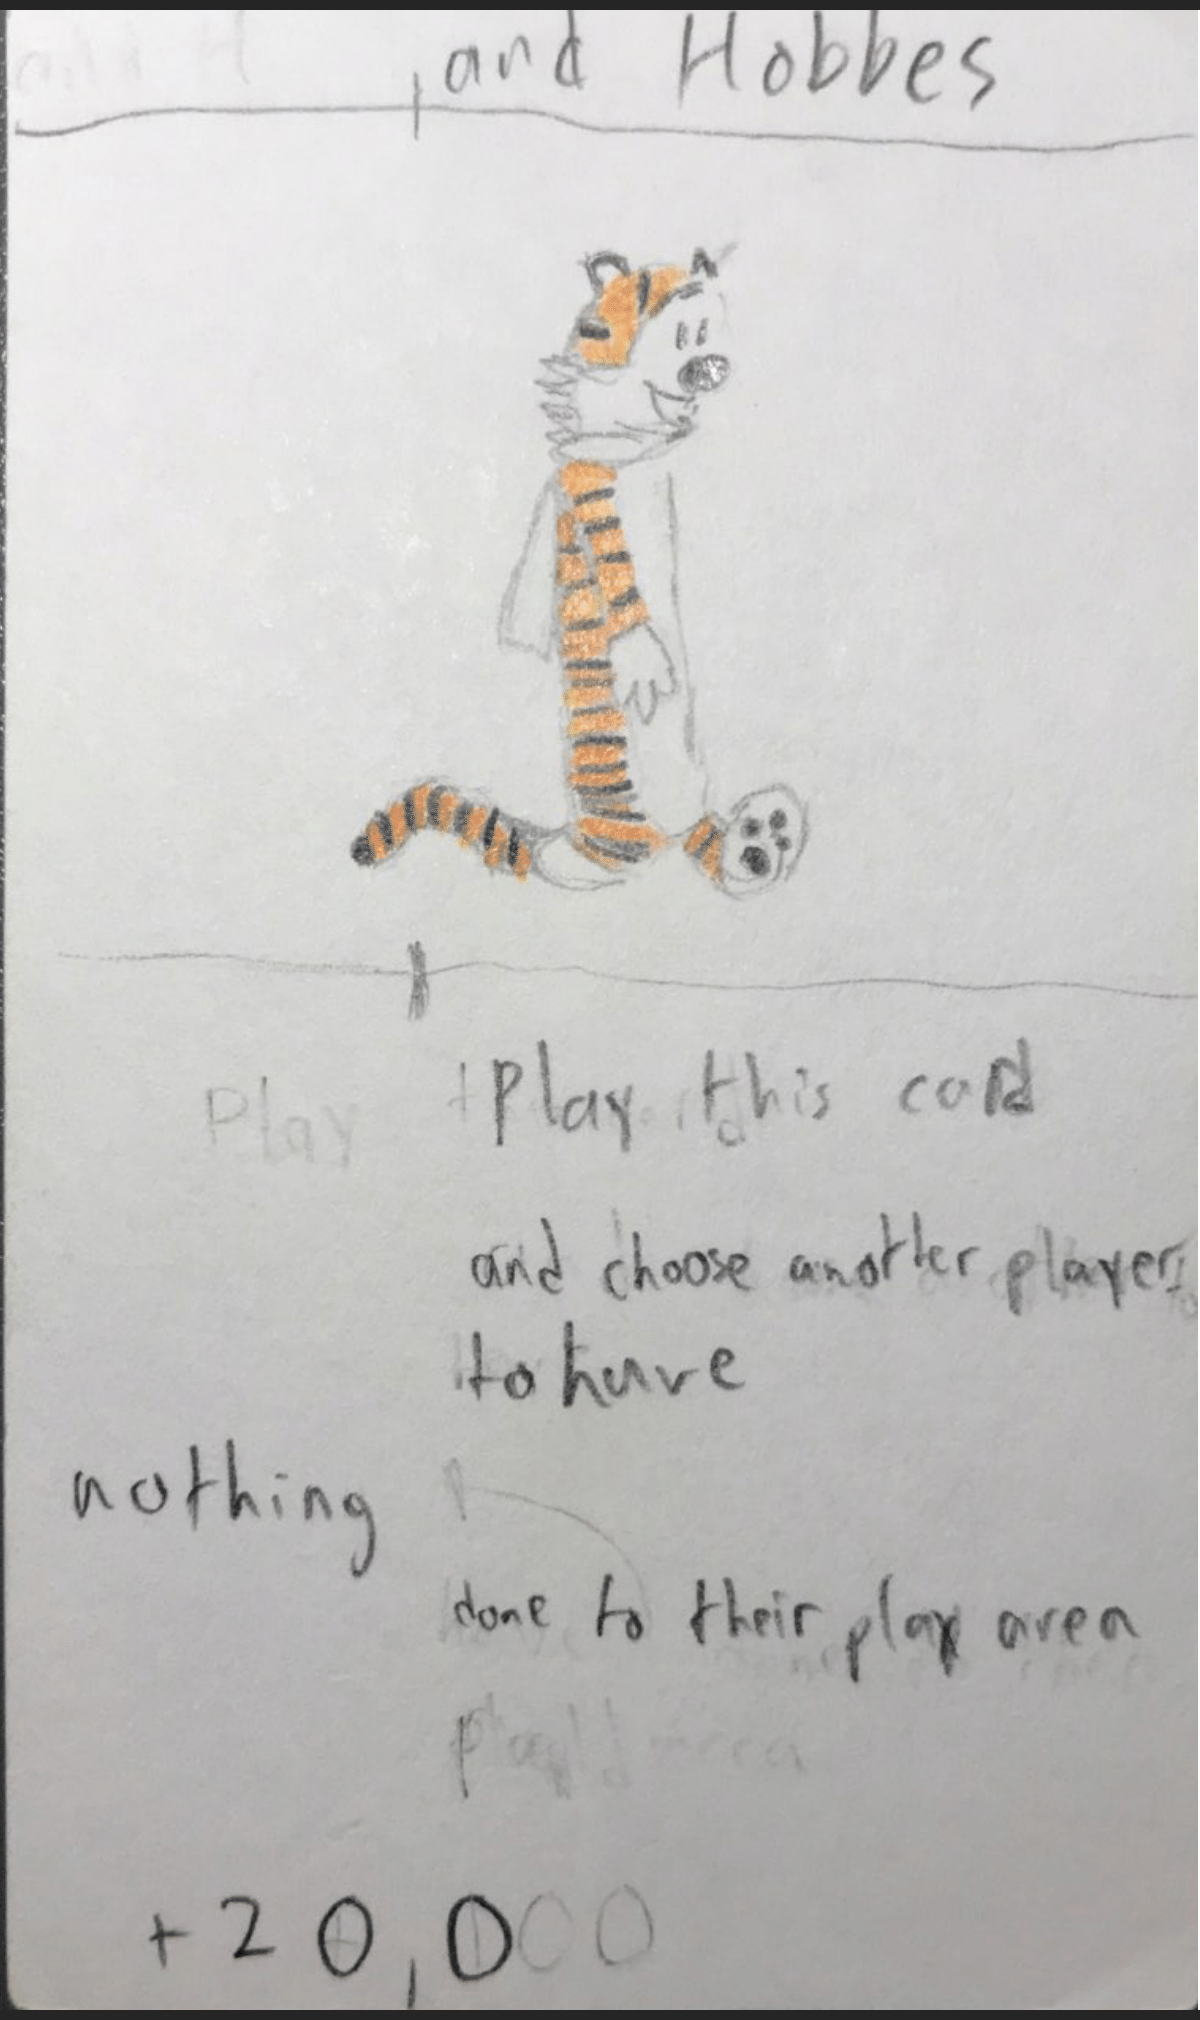 and Hobbes
Play this card
and choose another player
to have
nothing
done to their play area
+20,000